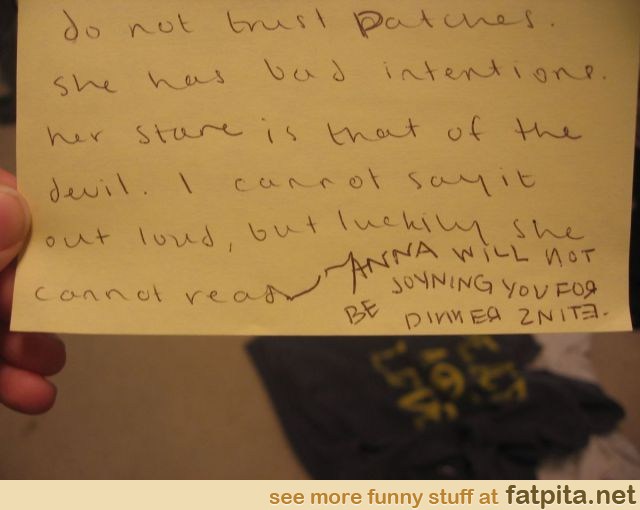 do not trust Patches.
She has bad intentions.
her stare is that of the
devil. I cannot say it
out loud, but luckily she
cannot read
ANNA WILL NOT
BE JOYNING YOU FOR
DINNER 2NITE.
see more funny stuff at fatpita.net